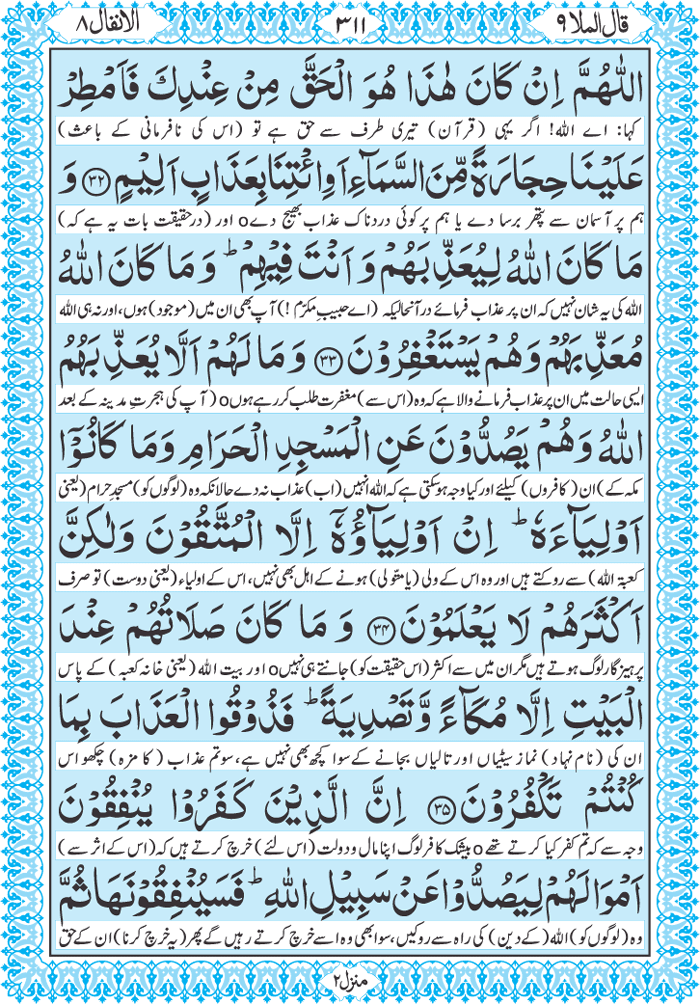 قال الملا ۹
۳۱۱
الانفال ۸
اللّٰهُمَّ اِنْ كَانَ هٰذَا هُوَ الْحَقَّ مِنْ عِنْدِكَ فَاَمْطِرْ
کہا: اے اللہ! اگر یہی (قرآن) تیری طرف سے حق ہے تو (اس کی نافرمانی کے باعث)
عَلَيْنَا حِجَارَةً مِّنَ السَّمَآءِ اَوِ ائْتِنَا بِعَذَابٍ اَلِيْمٍ ﴿۳۲﴾ وَ
ہم پر آسمان سے پتھر برسا دے یا ہم پر کوئی دردناک عذاب بھیج دے o اور (درحقیقت بات یہ ہے کہ)
مَا كَانَ اللّٰهُ لِيُعَذِّبَهُمْ وَ اَنْتَ فِيْهِمْ ؕ وَ مَا كَانَ اللّٰهُ
اللہ کی یہ شان نہیں کہ ان پر عذاب فرمائے درآنحالیکہ (اے حبیبِ مکرّم !) آپ بھی ان میں (موجود) ہوں، اور نہ ہی اللہ
مُعَذِّبَهُمْ وَهُمْ يَسْتَغْفِرُوْنَ ﴿۳۳﴾ وَ مَا لَهُمْ اَلَّا يُعَذِّبَهُمُ
ایسی حالت میں ان پر عذاب فرمانے والا ہے کہ وہ (اس سے) مغفرت طلب کر رہے ہوں o (آپ کی ہجرتِ مدینہ کے بعد
اللّٰهُ وَهُمْ يَصُدُّوْنَ عَنِ الْمَسْجِدِ الْحَرَامِ وَمَا كَانُوْۤا
مکہ کے) ان (کافروں) کیلئے اور کیا وجہ ہو سکتی ہے کہ اللہ انہیں (اب) عذاب نہ دے حالانکہ وہ (لوگوں کو) مسجدِ حرام (یعنی
اَوْلِيَآءَهٗ ؕ اِنْ اَوْلِيَآؤُهٗۤ اِلَّا الْمُتَّقُوْنَ وَلٰكِنَّ
کعبۃ اللہ) سے روکتے ہیں اور وہ اس کے ولی (یا متولّی) ہونے کے اہل بھی نہیں، اس کے اولیاء (یعنی دوست) تو صرف
اَكْثَرَهُمْ لَا يَعْلَمُوْنَ ﴿۳۴﴾ وَ مَا كَانَ صَلَاتُهُمْ عِنْدَ
پرہیزگار لوگ ہوتے ہیں مگر ان میں سے اکثر (اس حقیقت کو) جانتے ہی نہیں o اور بیت اللہ (یعنی خانہ کعبہ) کے پاس
الْبَيْتِ اِلَّا مُكَآءً وَّ تَصْدِيَةً ؕ فَذُوْقُوا الْعَذَابَ بِمَا
ان کی (نام نہاد) نماز سیٹیاں اور تالیاں بجانے کے سوا کچھ بھی نہیں ہے، سو تم عذاب (کا مزہ) چکھو اس
كُنْتُمْ تَكْفُرُوْنَ ﴿۳۵﴾ اِنَّ الَّذِيْنَ كَفَرُوْا يُنْفِقُوْنَ
وجہ سے کہ تم کفر کیا کرتے تھے o بیشک کافر لوگ اپنا مال و دولت (اس لئے) خرچ کرتے ہیں کہ (اس کے اثر سے)
اَمْوَالَهُمْ لِيَصُدُّوْا عَنْ سَبِيْلِ اللّٰهِ ؕ فَسَيُنْفِقُوْنَهَا ثُمَّ
وہ (لوگوں کو) اللہ (کے دین) کی راہ سے روکیں، سو ابھی وہ اسے خرچ کرتے رہیں گے پھر (یہ خرچ کرنا) ان کے حق
منزل ۲